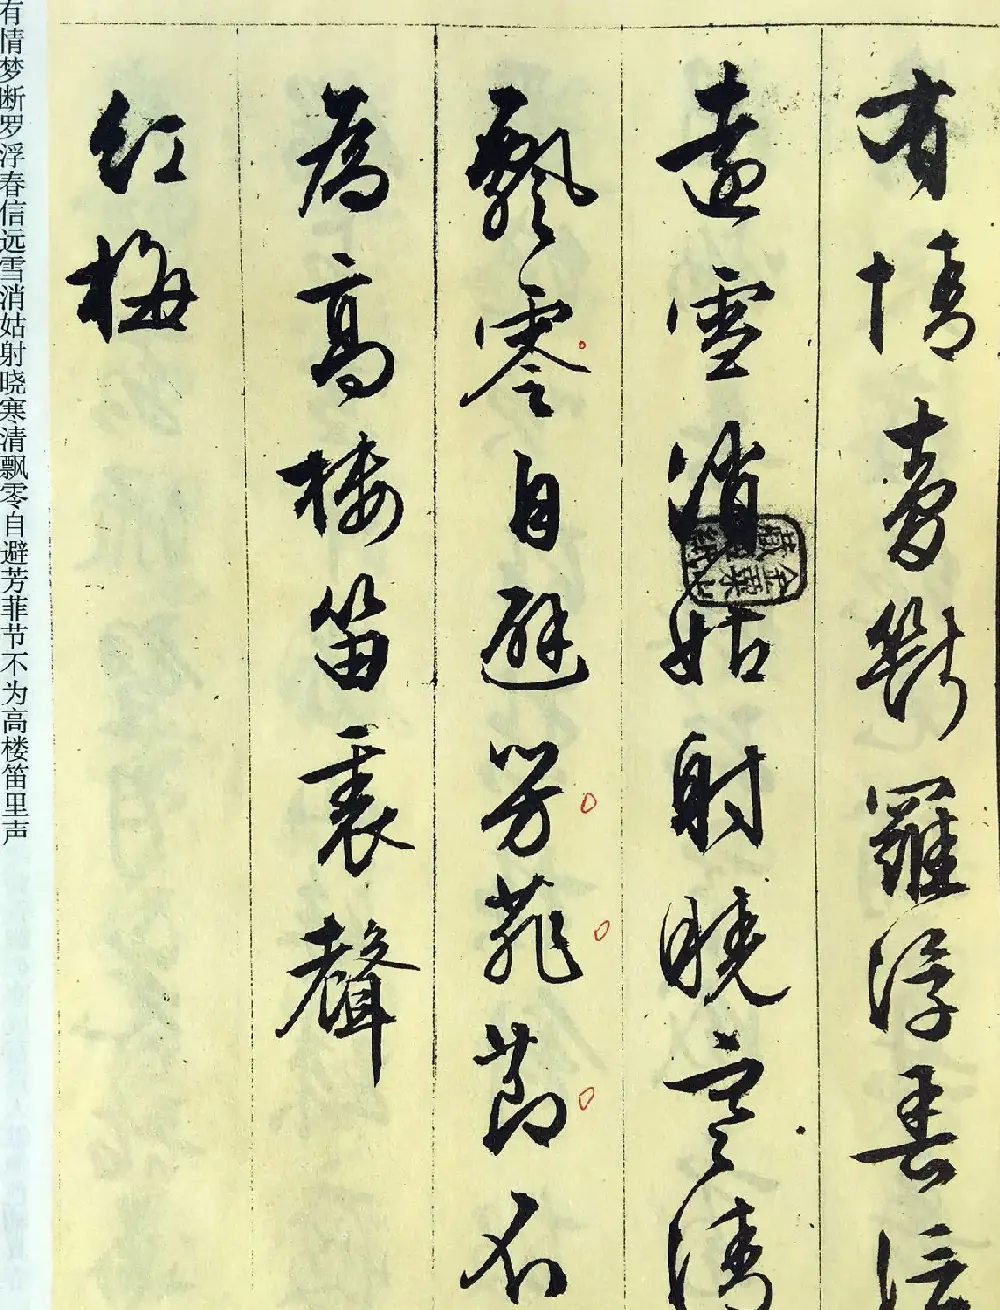 有情夢斷羅浮春信
遠雪消姑射曉寒清
飄零自避芳菲節不
為高樓笛裏聲
紅梅
金粟山藏經紙
有情梦断罗浮春信远雪消姑射晓寒清飘零自避芳菲节不为高楼笛里声